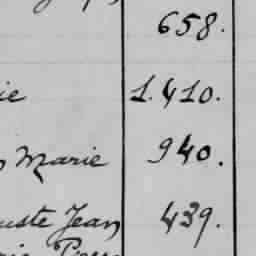 658.
ie 1.410.
Marie 940.
uste Jean 439.